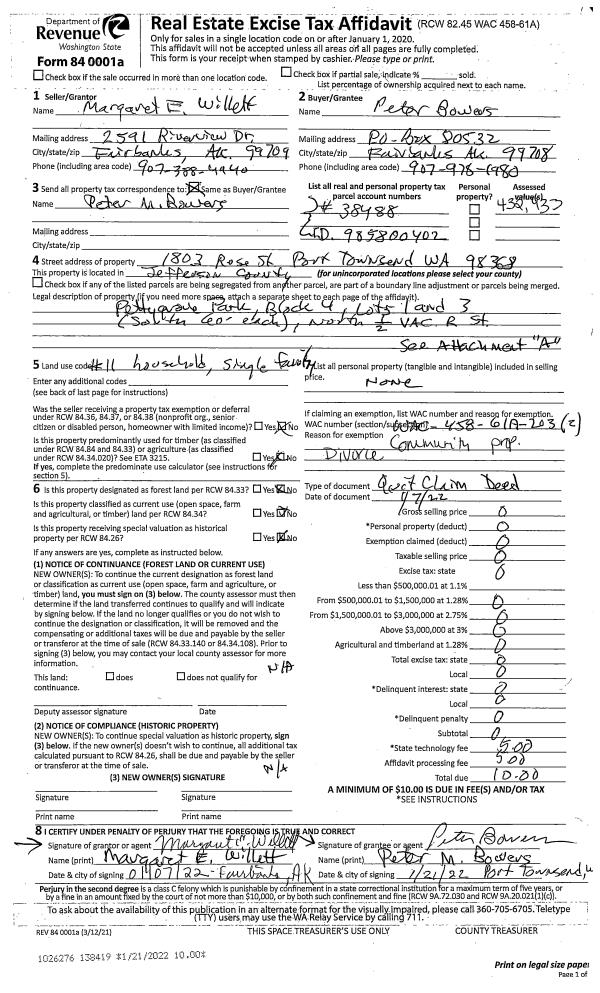 Department of
Revenue
Washington State
Form 84 0001a
Real Estate Excise Tax Affidavit (RCW 82.45 WAC 458-61A)
Only for sales in a single location code on or after January 1, 2020.
This affidavit will not be accepted unless all areas on all pages are fully completed.
This form is your receipt when stamped by cashier. Please type or print.
Check box if the sale occurred in more than one location code.
Check box if partial sale, indicate % ______ sold.
List percentage of ownership acquired next to each name.
1 Seller/Grantor
Name Margaret E. Willett
Mailing address 2591 Riverview Dr.
City/state/zip Fairbanks, AK. 99709
Phone (including area code) 907-388-4940
2 Buyer/Grantee
Name Peter Bowers
Mailing address PO-Box 80532
City/state/zip Fairbanks Ak. 99708
Phone (including area code) 907-978-1980
3 Send all property tax correspondence to: Same as Buyer/Grantee
Name Peter M. Bowers
Mailing address
City/state/zip
List all real and personal property tax parcel account numbers
Personal property?
Assessed value(s)
# 38488
I.D. 985800402
4 Street address of property 1803 Rose St. Port Townsend WA 98368
This property is located in Jefferson County (for unincorporated locations please select your county)
Check box if any of the listed parcels are being segregated from another parcel, are part of a boundary line adjustment or parcels being merged.
Legal description of property (if you need more space, attach a separate sheet to each page of the affidavit).
Pettygrove Park, Block 4, Lots 1 and 3
(South 60' each), North 1/2 VAC. R St.
See Attachment "A"
5 Land use code #11 household, single family
Enter any additional codes
(see back of last page for instructions)
Was the seller receiving a property tax exemption or deferral
under RCW 84.36, 84.37, or 84.38 (nonprofit org., senior
citizen or disabled person, homeowner with limited income)? Yes No
Is this property predominantly used for timber (as classified
under RCW 84.84 and 84.33) or agriculture (as classified
under RCW 84.34.020)? See ETA 3215. Yes No
If yes, complete the predominate use calculator (see instructions for
section 5).
6 Is this property designated as forest land per RCW 84.33? Yes No
Is this property classified as current use (open space, farm
and agricultural, or timber) land per RCW 84.34? Yes No
Is this property receiving special valuation as historical
property per RCW 84.26? Yes No
If any answers are yes, complete as instructed below.
(1) NOTICE OF CONTINUANCE (FOREST LAND OR CURRENT USE)
NEW OWNER(S): To continue the current designation as forest land
or classification as current use (open space, farm and agriculture, or
timber) land, you must sign on (3) below. The county assessor must then
determine if the land transferred continues to qualify and will indicate
by signing below. If the land no longer qualifies or you do not wish to
continue the designation or classification, it will be removed and the
compensating or additional taxes will be due and payable by the seller
or transferor at the time of sale (RCW 84.33.140 or 84.34.108). Prior to
signing (3) below, you may contact your local county assessor for more
information.
N/A
This land: does does not qualify for
continuance.
Deputy assessor signature Date
(2) NOTICE OF COMPLIANCE (HISTORIC PROPERTY)
NEW OWNER(S): To continue special valuation as historic property, sign
(3) below. If the new owner(s) doesn't wish to continue, all additional tax
calculated pursuant to RCW 84.26, shall be due and payable by the seller
or transferor at the time of sale.
N/A
(3) NEW OWNER(S) SIGNATURE
Signature Signature
Print name Print name
7 List all personal property (tangible and intangible) included in selling
price.
None
If claiming an exemption, list WAC number and reason for exemption.
WAC number (section/subsection) WAC-458-61A-203 (2)
Reason for exemption
Community prop.
Divorce
Type of document Quit Claim Deed
Date of document 1/7/22
Gross selling price 0
*Personal property (deduct) 0
Exemption claimed (deduct) 0
Taxable selling price 0
Excise tax: state 0
Less than $500,000.01 at 1.1%
From $500,000.01 to $1,500,000 at 1.28% 0
From $1,500,000.01 to $3,000,000 at 2.75% 0
Above $3,000,000 at 3% 0
Agricultural and timberland at 1.28% 0
Total excise tax: state 0
Local 0
*Delinquent interest: state 0
Local 0
*Delinquent penalty 0
Subtotal 0
*State technology fee 5.00
Affidavit processing fee 5.00
Total due 10.00
A MINIMUM OF $10.00 IS DUE IN FEE(S) AND/OR TAX
*SEE INSTRUCTIONS
8 I CERTIFY UNDER PENALTY OF PERJURY THAT THE FOREGOING IS TRUE AND CORRECT
Signature of grantor or agent Margaret E. Willett
Name (print) Margaret E. Willett
Date & city of signing 01/07/22 - Fairbanks, AK
Signature of grantee or agent Peter Bowers
Name (print) Peter M. Bowers
Date & city of signing 1/21/22 Port Townsend,
Perjury in the second degree is a class C felony which is punishable by confinement in a state correctional institution for a maximum term of five years, or
by a fine in an amount fixed by the court of not more than $10,000, or by both such confinement and fine (RCW 9A.72.030 and RCW 9A.20.021(1)(c)).
To ask about the availability of this publication in an alternate format for the visually impaired, please call 360-705-6705. Teletype
(TTY) users may use the WA Relay Service by calling 711.
REV 84 0001a (3/12/21)
THIS SPACE TREASURER'S USE ONLY
COUNTY TREASURER
1026276 138419 *1/21/2022 10.00*
Print on legal size paper
Page 1 of